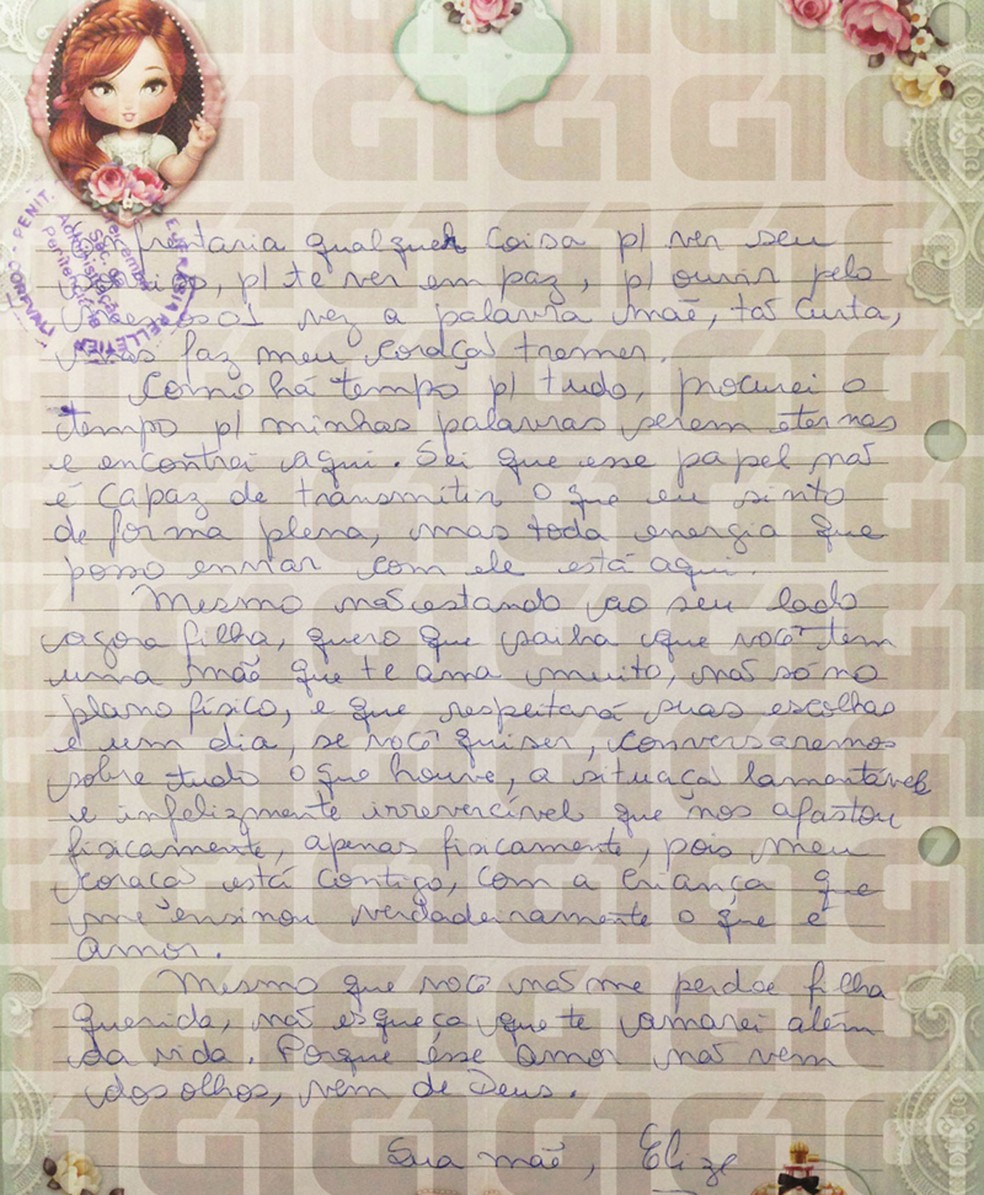 Enfrentaria qualquer coisa p/ ver seu
sorriso, p/ te ver em paz, p/ ouvir pelo
menos 01 vez a palavra mãe, tão curta,
mas faz meu coração tremer.
Como há tempo p/ tudo, procurei o
tempo p/ minhas palavras serem eternas
e encontrei aqui. Sei que esse papel não
é capaz de transmitir o que eu sinto
de forma plena, mas toda energia que
posso enviar com ele está aqui.
Mesmo não estando ao seu lado
agora filha, quero que saiba que você tem
uma mãe que te ama muito, não só no
plano físico, e que respeitará suas escolhas
e um dia, se você quiser, conversaremos
sobre tudo o que houve, a situação lamentável
e infelizmente irrevercível que nos afastou
fisicamente, apenas fisicamente, pois meu
coração está contigo, com a criança que
me ensinou verdadeiramente o que é
amor.
Mesmo que você não me perdoe filha
querida, não esqueça que te amarei além
da vida. Porque esse amor não vem
dos olhos, vem de Deus.
Sua mãe, Elize